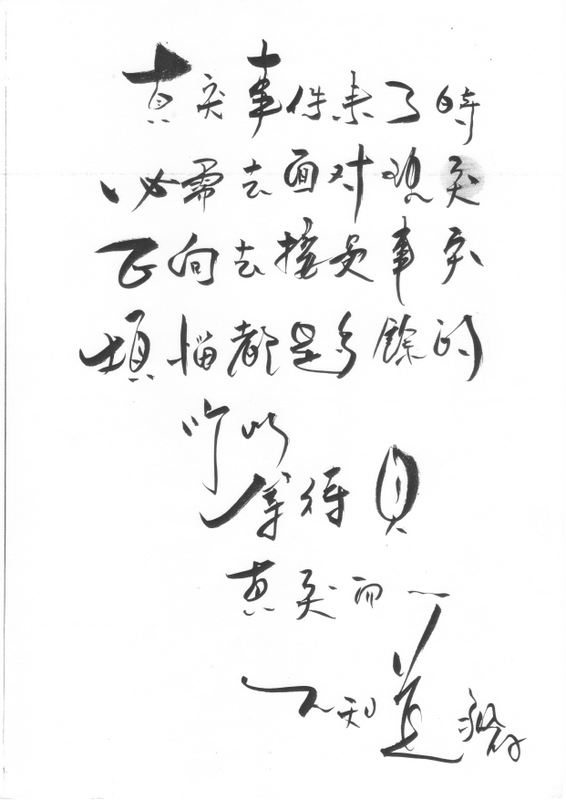 真实事件来了時
必需去面对現实
正向去接受事实
煩惱都是多餘的
所以
等待
真实而
不知道